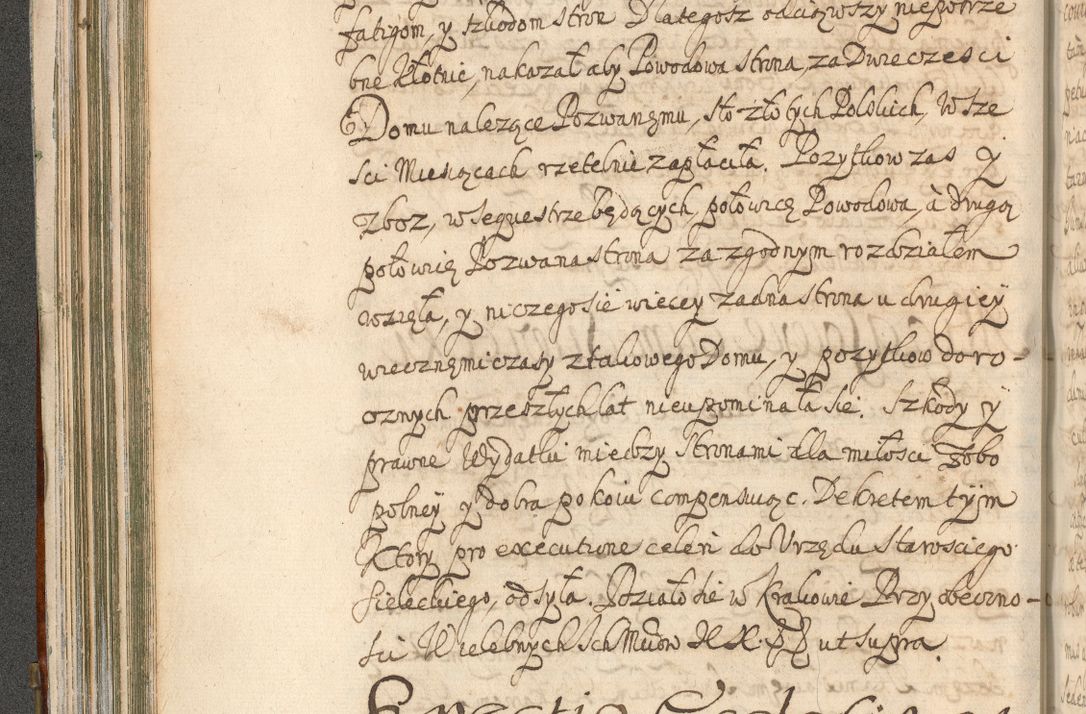 fatigom, y szkodom stron Dlategosz odciąwszy niepotrze
bne kłotnie, nakazał aby Powodowa strona, za Dwie czesci
Domu nalezące Pozwanęmu, sto złotych Polskich, w sze
sci Miesiącach rzetelnie zapłaciła. Pozytkow zas y
zboz, w sequestrze będących, połowicę Powodowa, à drugą
połowicę Pozwana strona za zgodnym rozdziałem
wzięła, y niczego sie wiecey zadna strona u drugiey
wiecznęmi czasy z takowego Domu, y pozytkow doro-
cznych przeszłych lat nieupominała sie. Szkody y
prawne Wydatki miedzy stronami dla miłosci zobo
polney y dobra pokoiu compensuiąc. Dekretem tym
Ktory pro executione celeri do Vrzędu Starosciego
sieleckiego, odsyła. Działo sie w Krakowie Przy obecno-
sci Wielebnych Ich Mciow X X. PP ut supra.